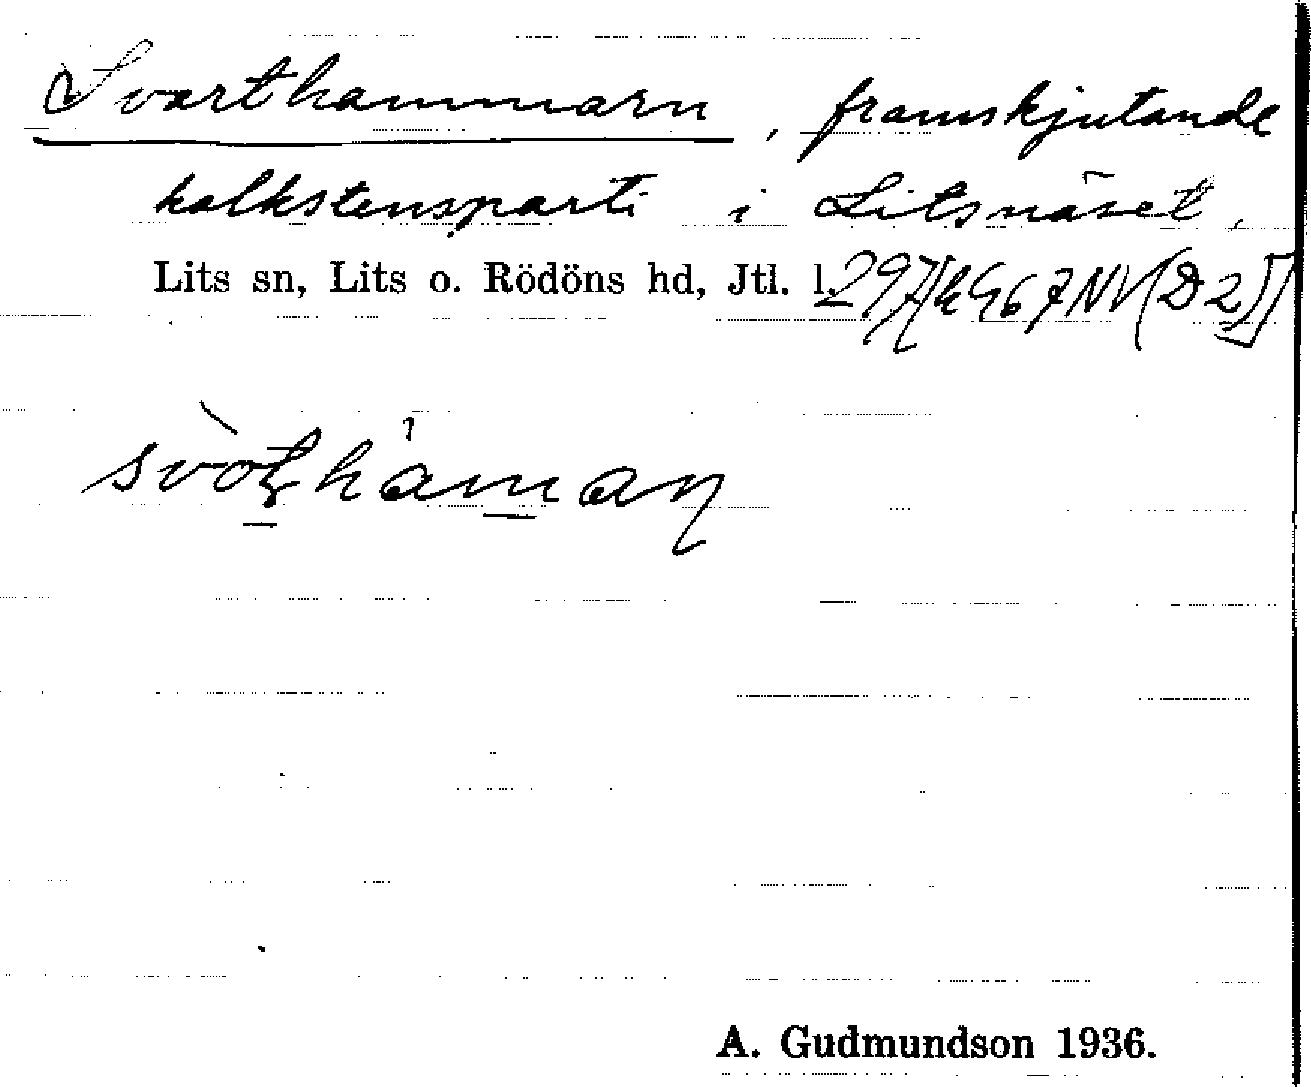 Svarthammarn, framskjutande
kalkstensparti i Litsnäset,
Lits sn, Lits o. Rödöns hd, Jtl. l.
svòʈháman
A. Gudmundson 1936.